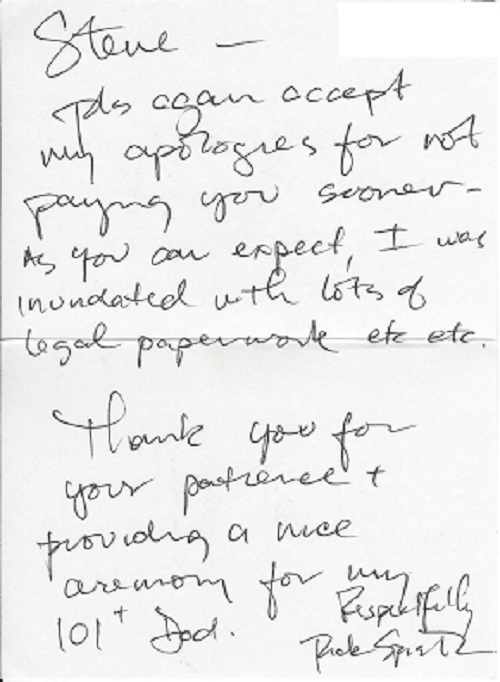 Steve —
Pls again accept
my apologies for not
paying you sooner -
As you can expect, I was
inundated with lots of
legal paperwork etc etc.
Thank you for
your patience +
providing a nice
ceremony for my
101+ Dad.
Respectfully